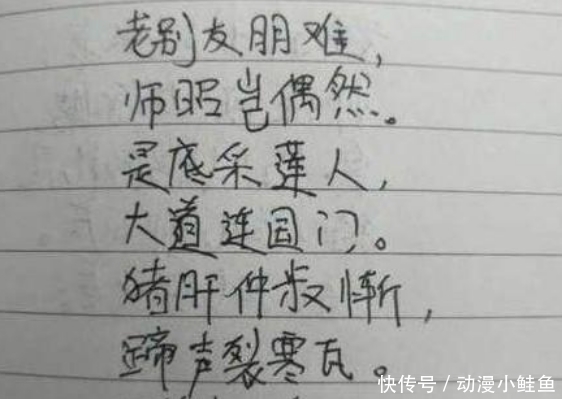 老别友朋难，
师昭岂偶然。
是底采莲人，
大道连国门。
猪肝仲叔惭，
蹄声裂寒瓦。
快传号/动漫小鲑鱼